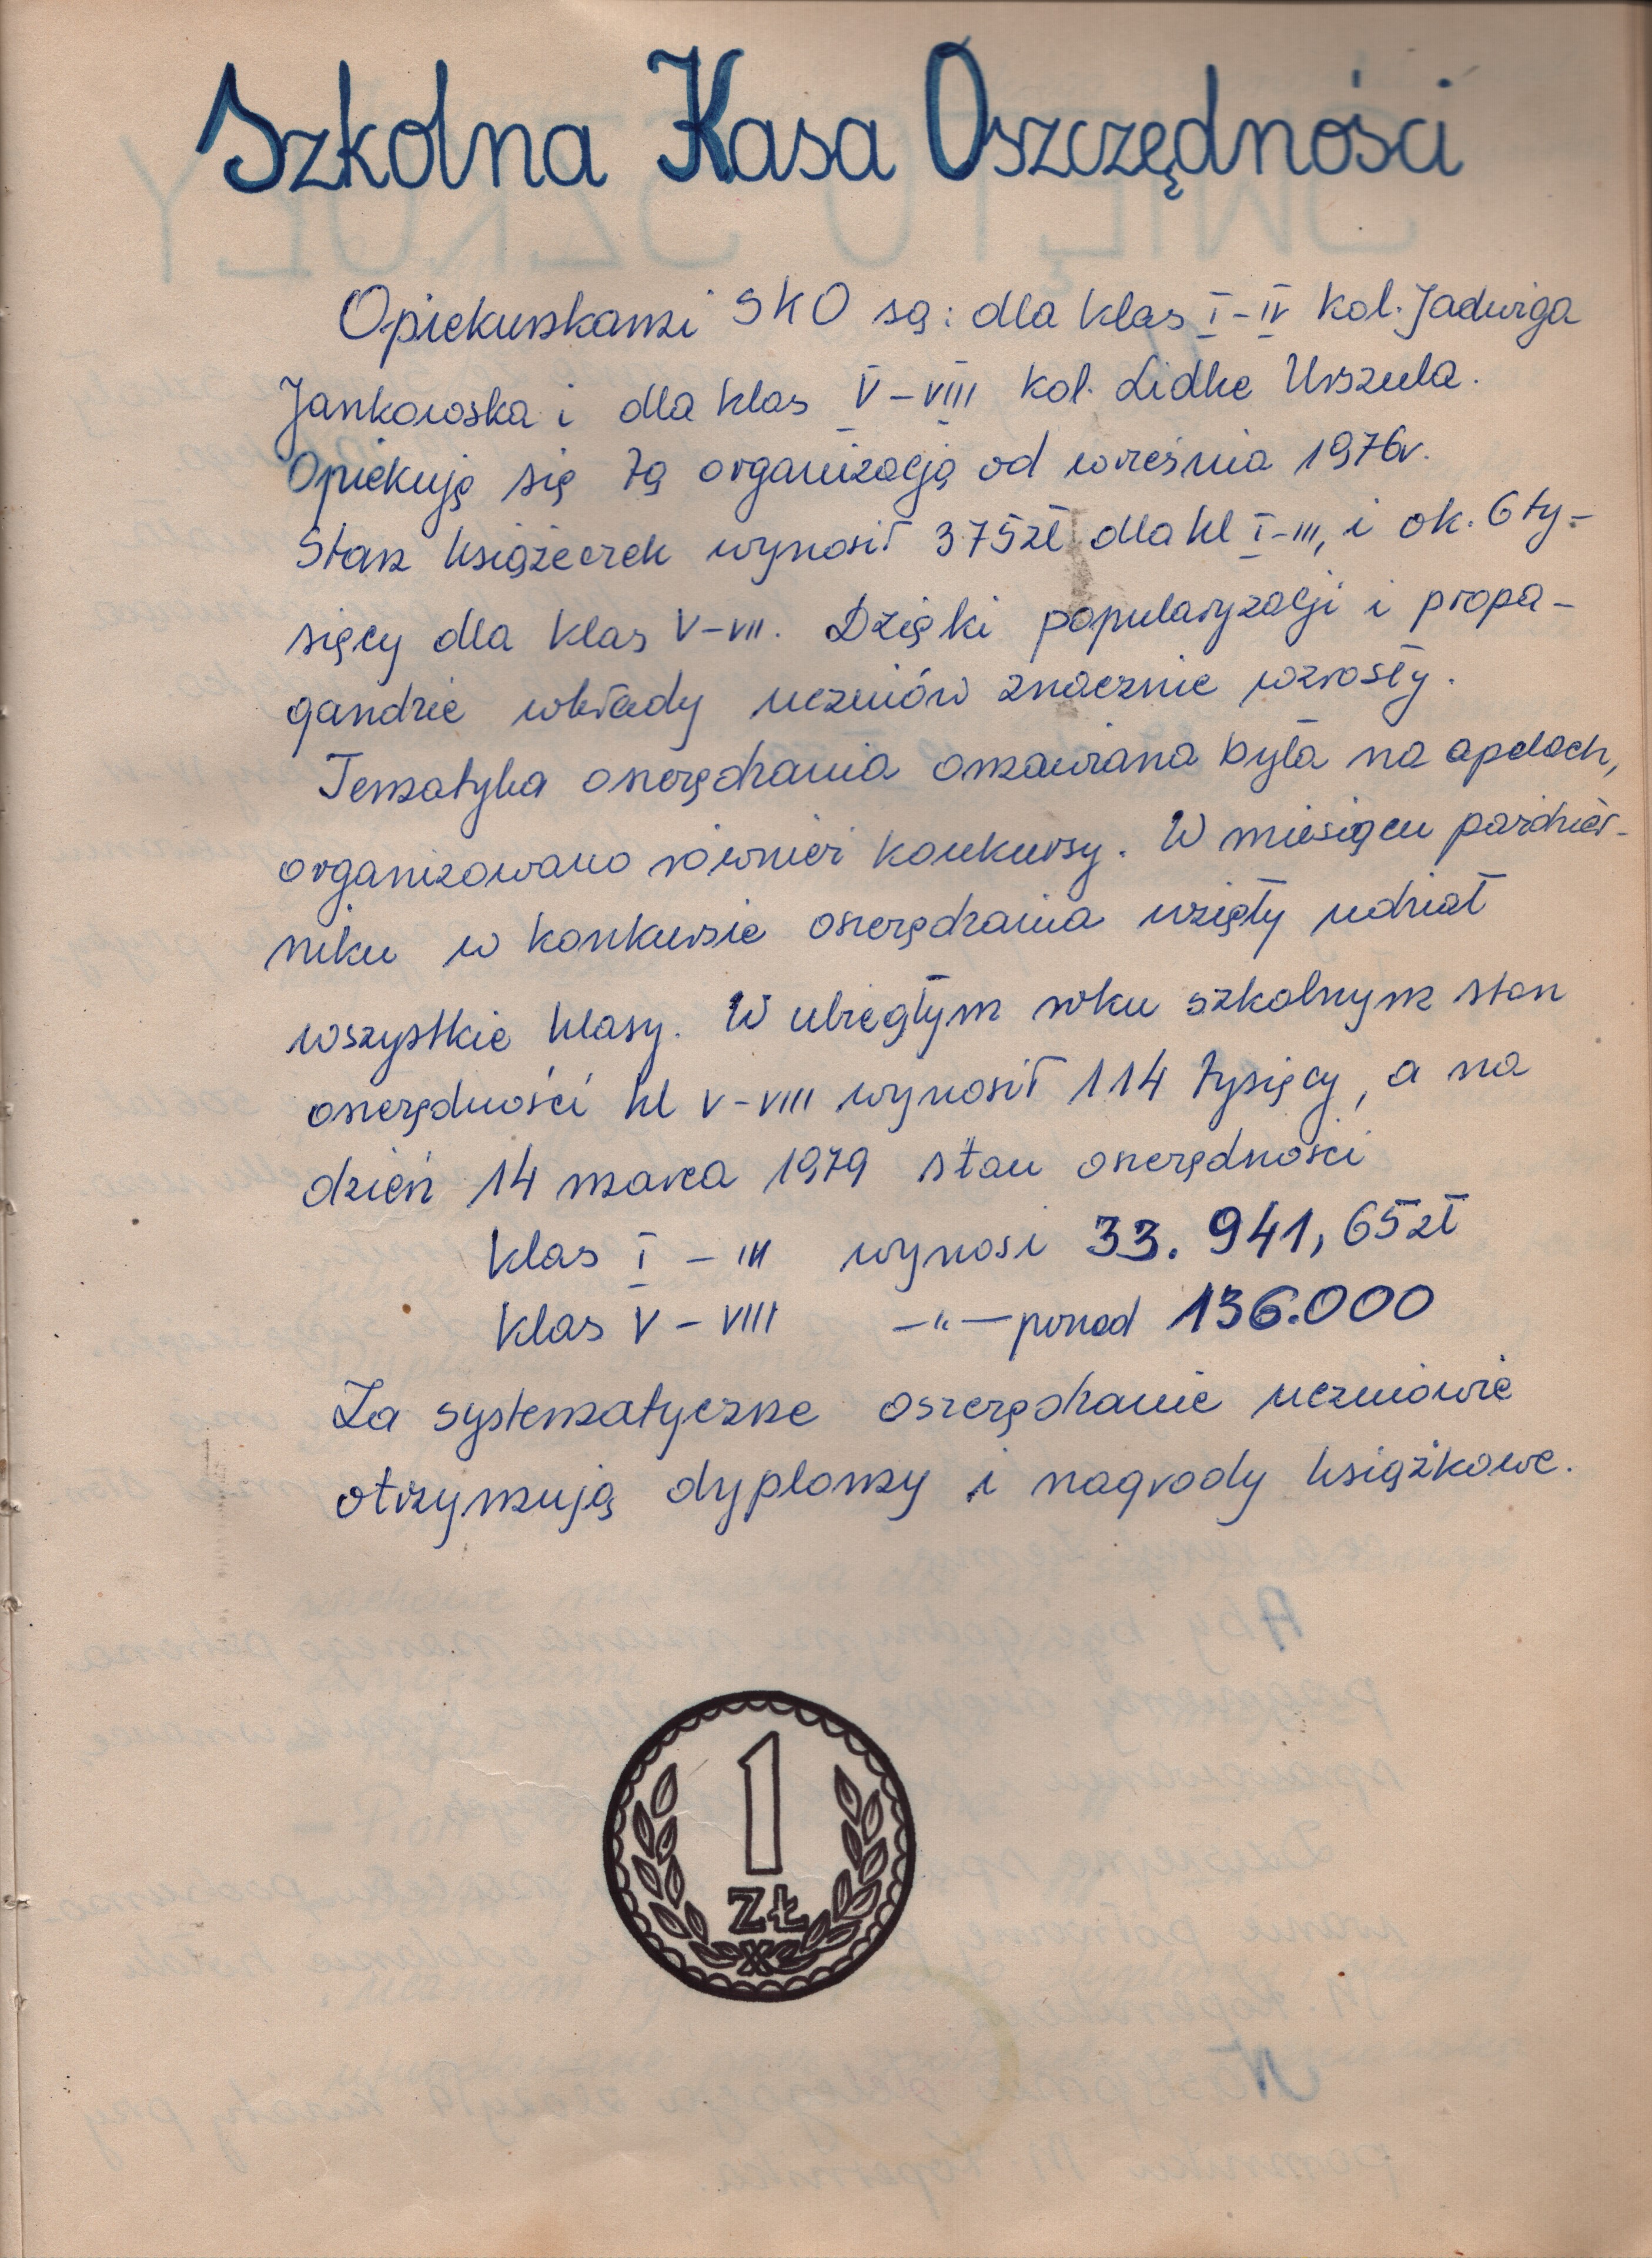 Szkolna Kasa Oszczędności
Opiekunkami SKO są: dla klas I-IV kol. Jadwiga
Jankowska i dla klas V-VIII kol. Lidke Urszula.
Opiekują się tą organizacją od września 1976r.
Stan książeczek wynosił 375zł dla kl I-III, i ok. 6 ty-
sięcy dla klas V-VII. Dzięki popularyzacji i propa-
gandzie wkłady uczniów znacznie wzrosły.
Tematyka oszczędzania omawiana była na apelach,
organizowano również konkursy. W miesiącu paździer-
niku w konkursie oszczędzania wzięły udział
wszystkie klasy. W ubiegłym roku szkolnym stan
oszczędności kl V-VIII wynosił 114 tysięcy, a na
dzień 14 marca 1979 stan oszczędności
klas I - III wynosi 33.941,65zł
klas V - VIII -"- ponad 136.000
Za systematyczne oszczędzanie uczniowie
otrzymują dyplomy i nagrody książkowe.
1
ZŁ